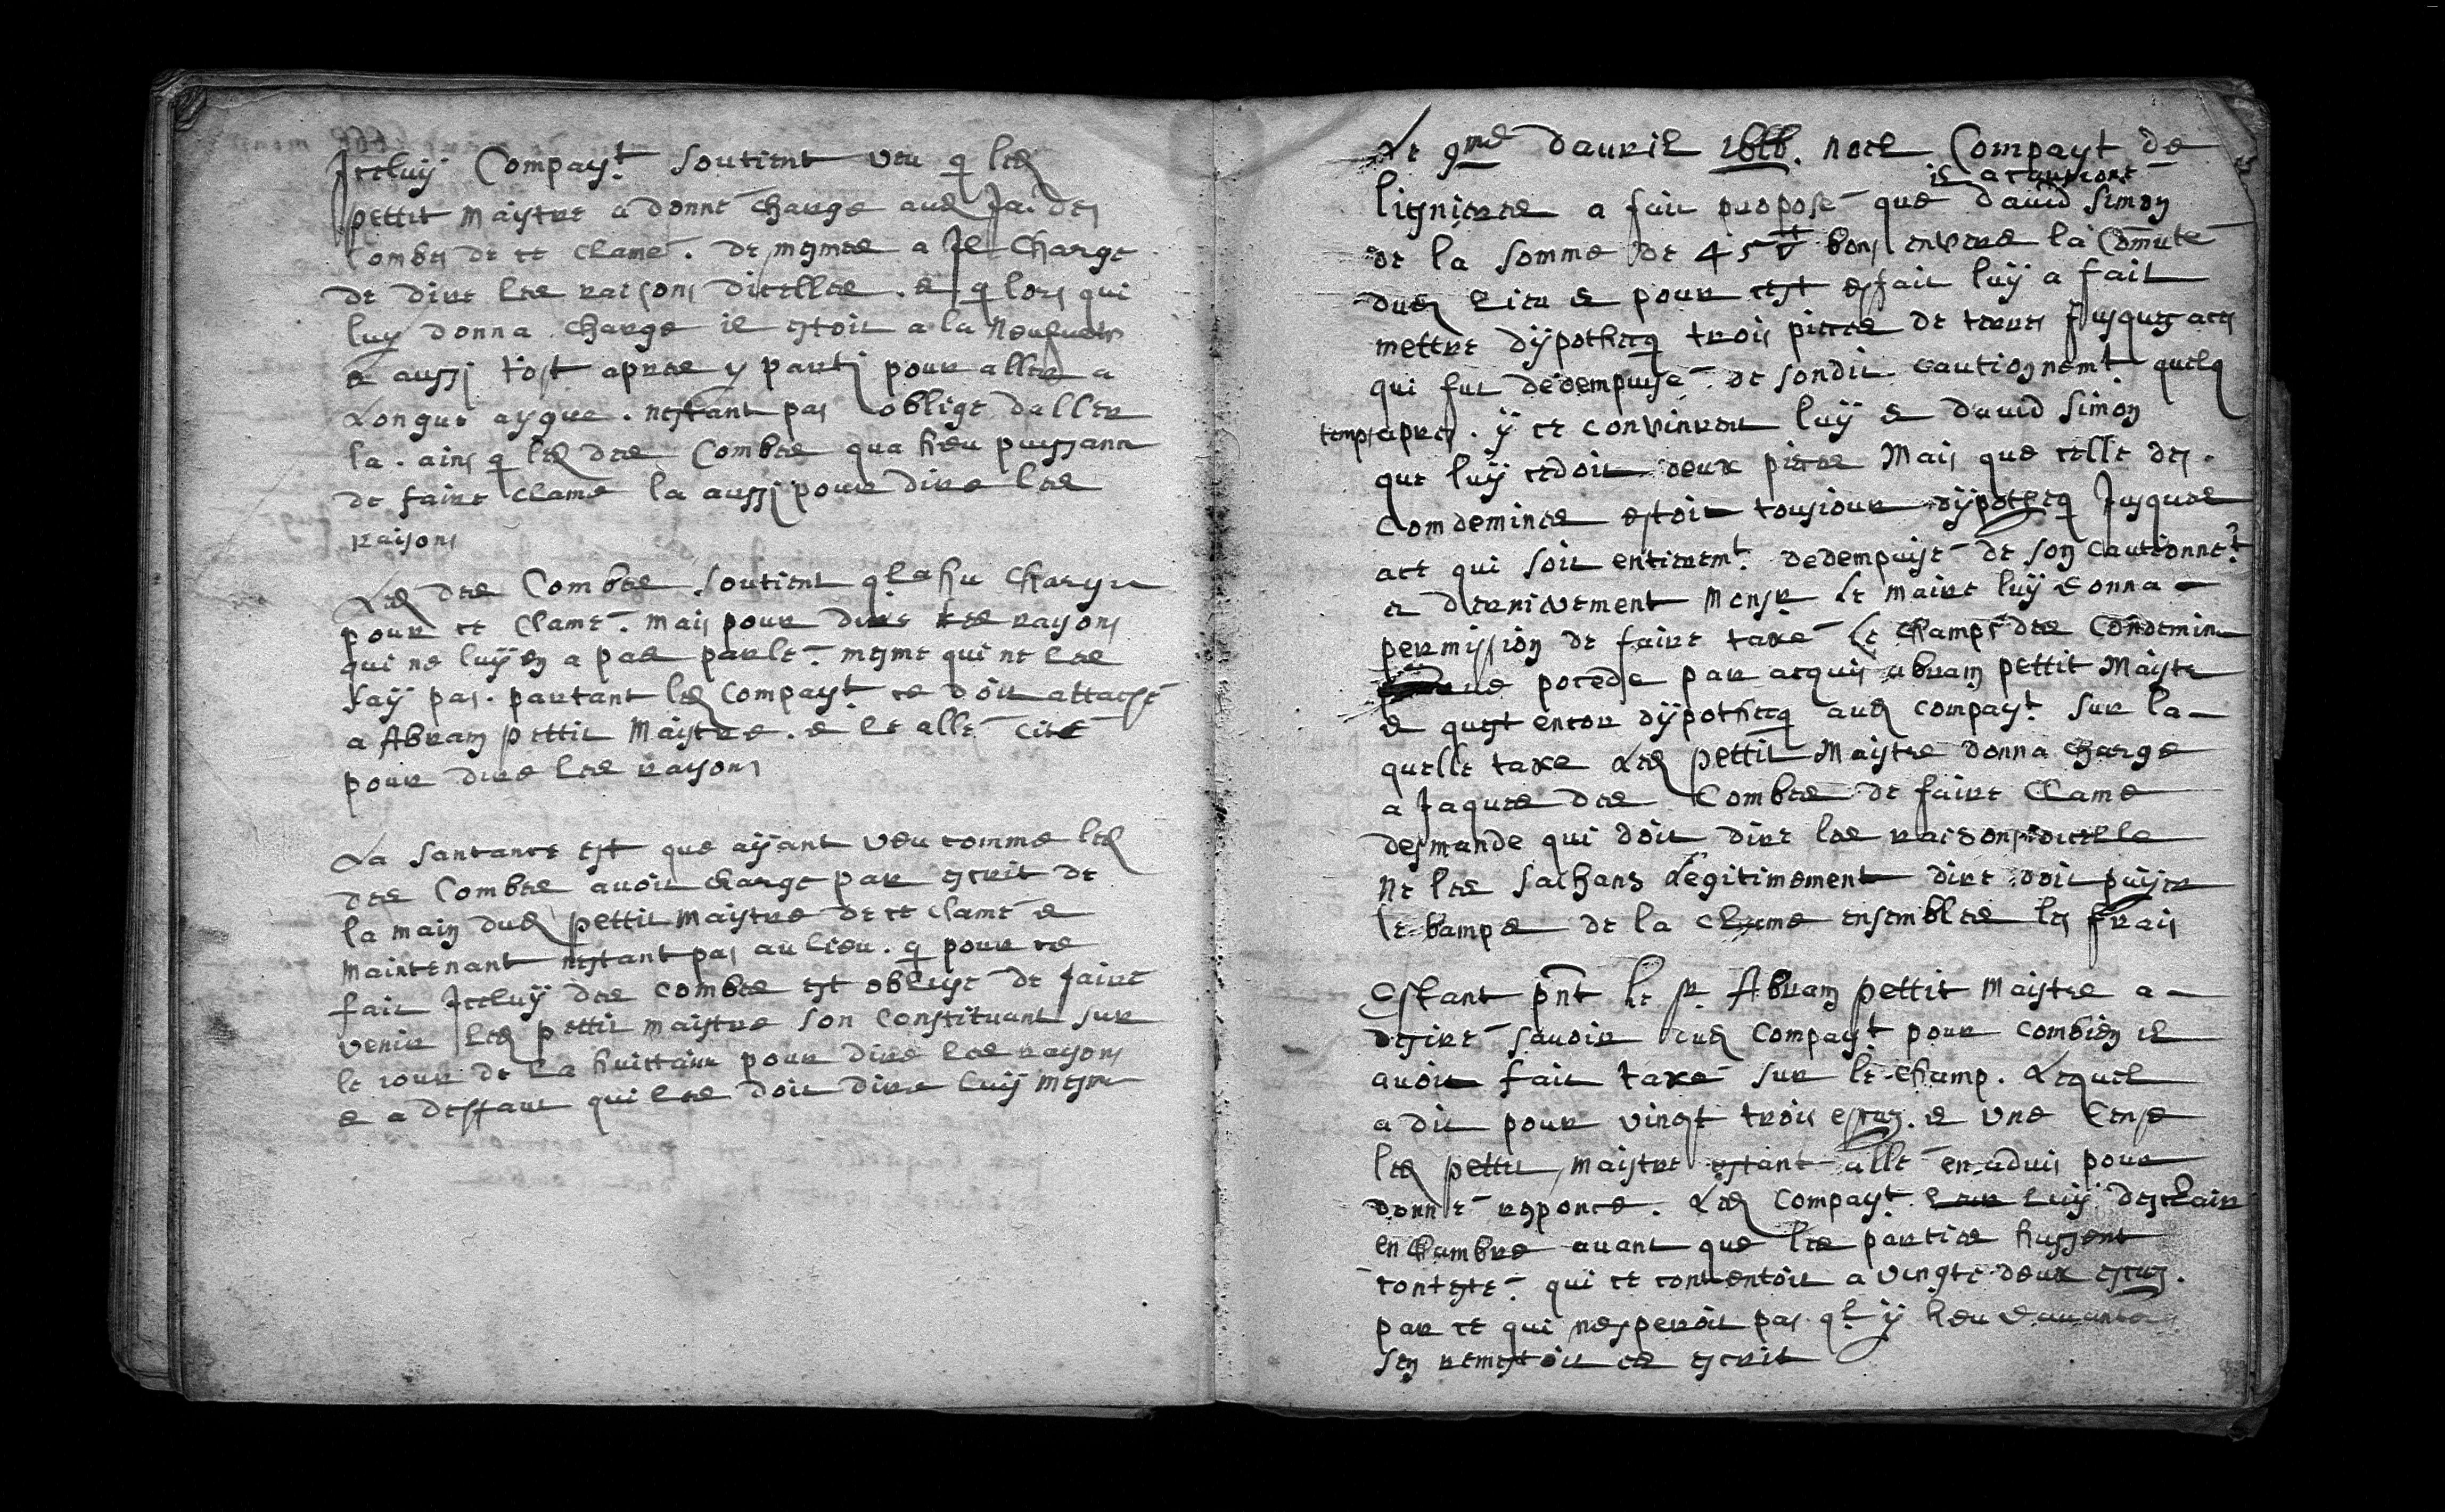 Jceluÿ Compayt. soutient veu q led
pettit maistre a donné charge aud Jai des
Combes de ce clamé. de mesmes a Jl charge
de dire les raisons dicelles. & q lors qui
luy donna charge il estoit a la
& aussi tost apres y parti pour aller a
Longue aygue. nestant pas obligé daller
la. ains q led des Combes qua heu puissance
de faire clame la aussi pour dire les
raisons
Led des Combes soutient ql a hu charge
pour ce clamé. mais pour dire les raysons
qui ne luÿ en a pas parlé. mesme qui ne les
say pas. partant led Compayt ce doit attaché
a Abram pettit Maistre. & le allé cité
pour dire les raysons
La santance est que aÿant veu comme led
des Combes avoit charge par escrit de
la main dud pettit maistre de ce clamé &
maintenant nestant pas au lieu. q pour ce
fait Jceluÿ des combes est obligé de faire
venir led pettit maistre son constituant sur
le iour de la huittaine pour dire les raysons
& a deffaut qui les doit dire luÿ mesme
Le 9me dauril 1666. noel Compayt de
il a cautioné
lignieres a fait proposé que dauid simon
de la somme de 45 bons envers la Comute
dud lieu & pour cest esfait luÿ a fait
mettre dÿpothecq trois pieces de terres Jusques aces
qui fut dedempuisé de sondit cautiognemt. quelq
temps apres. ÿ ce convinrent luÿ & dauid simon
que luÿ cedoit deux pieces Mais que celle des
Comdemines estoit tousiour dÿpothecq Jusques
ace qui soit entieremt. dedempuisé de son cautionnet.
& dernierement monsr le maire luÿ donna
permission de faire taxé le champs des Condemines
que possede par acquis abram pettit Maistre
& quest encor dÿpothecq aud compayt. sur la
quelle taxe Led pettit Maistre donna charge
a Jaques des Combes de faire Clame
desmande qui doit dire les raisons dicelle
ne les sachans Legitimement dire doit puÿer
le bampe de la clame ensembles les frais
Estant pnt le sr. Abram pettit Maistre a
desiré savoir dud Compayt pour combien il
avoit fait taxé sur le champ. Lequel
a dit pour vingt trois escus. & une Cense
led pettit maistre estant allé en aduis pour
donné responce. Led Compayt. luÿ desclair
en chambre avant que les parties hussent
contesté. qui ce contentoit a vingte deux escus.
par ce qui nesperoit pas ql ÿ heu davantage
sen remestoit escrit